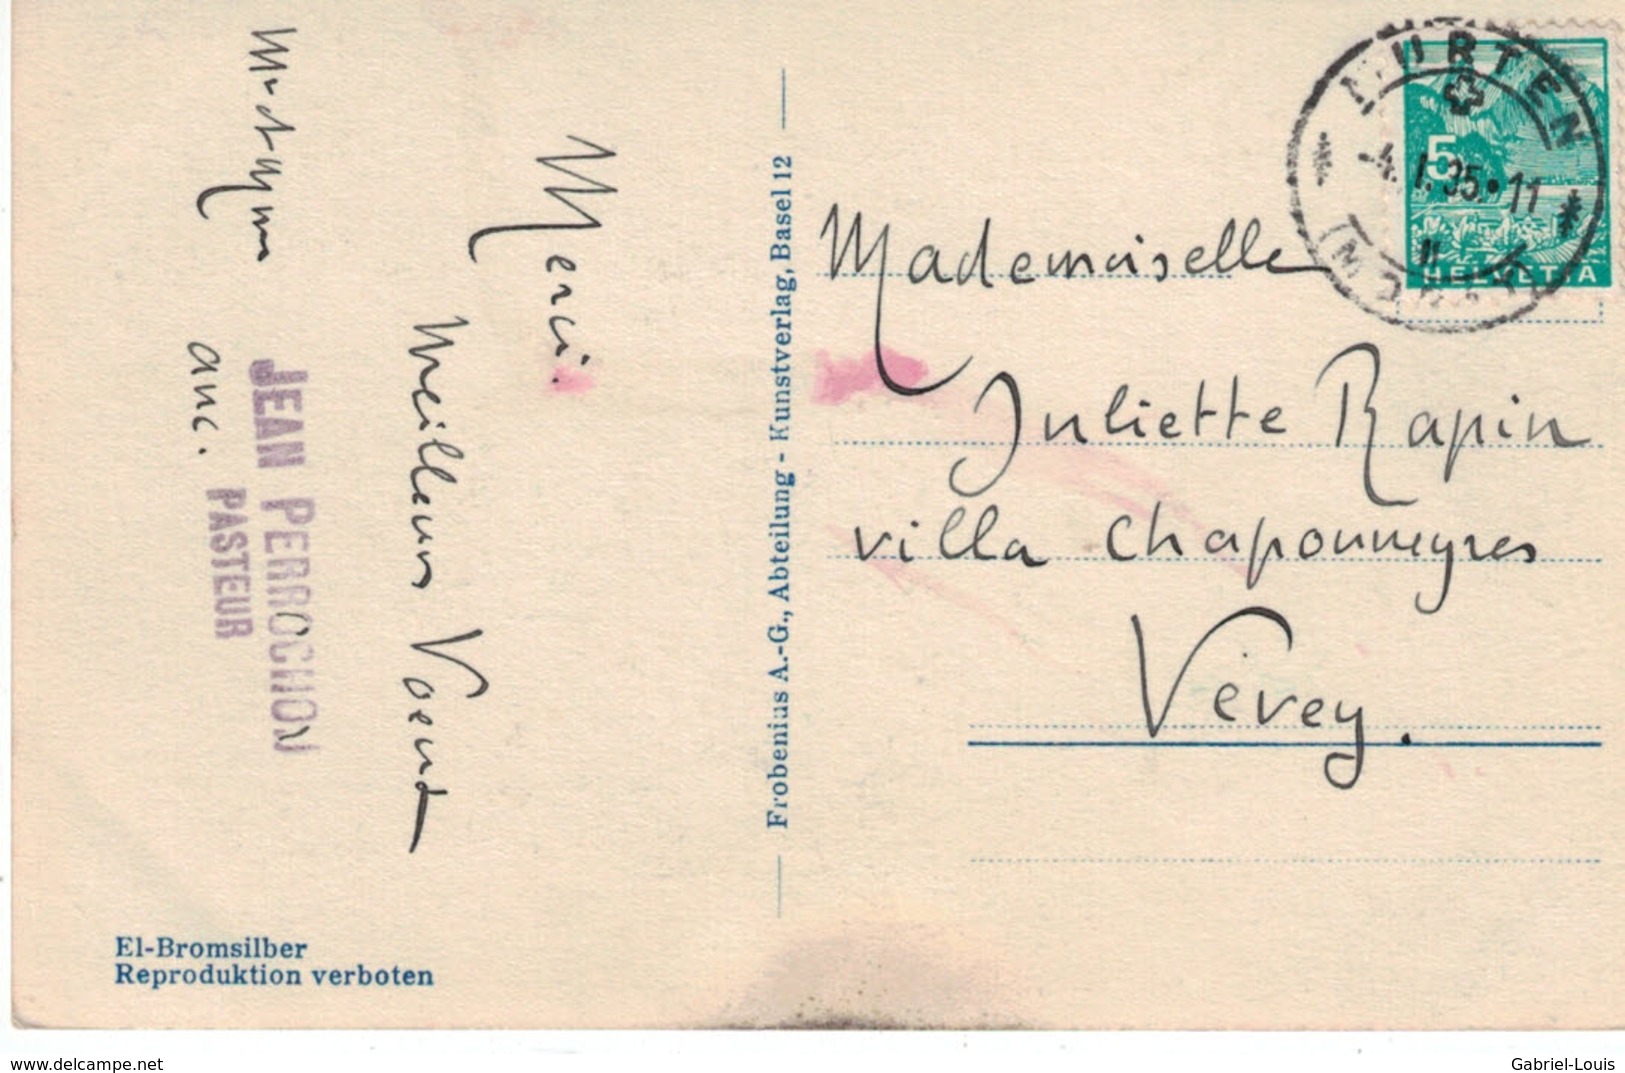 Merci.
Meilleurs Voeux
anc.
JEAN PERROCHON
PASTEUR
El-Bromsilber
Reproduktion verboten
Frobenius A.-G., Abteilung - Kunstverlag, Basel 12
MURTEN
4.I.35.11
(MORAT)
5
HELVETIA
Mademoiselle
Juliette Rapin
villa Chaponneyres
Vevey.
www.delcampe.net
Gabriel-Louis